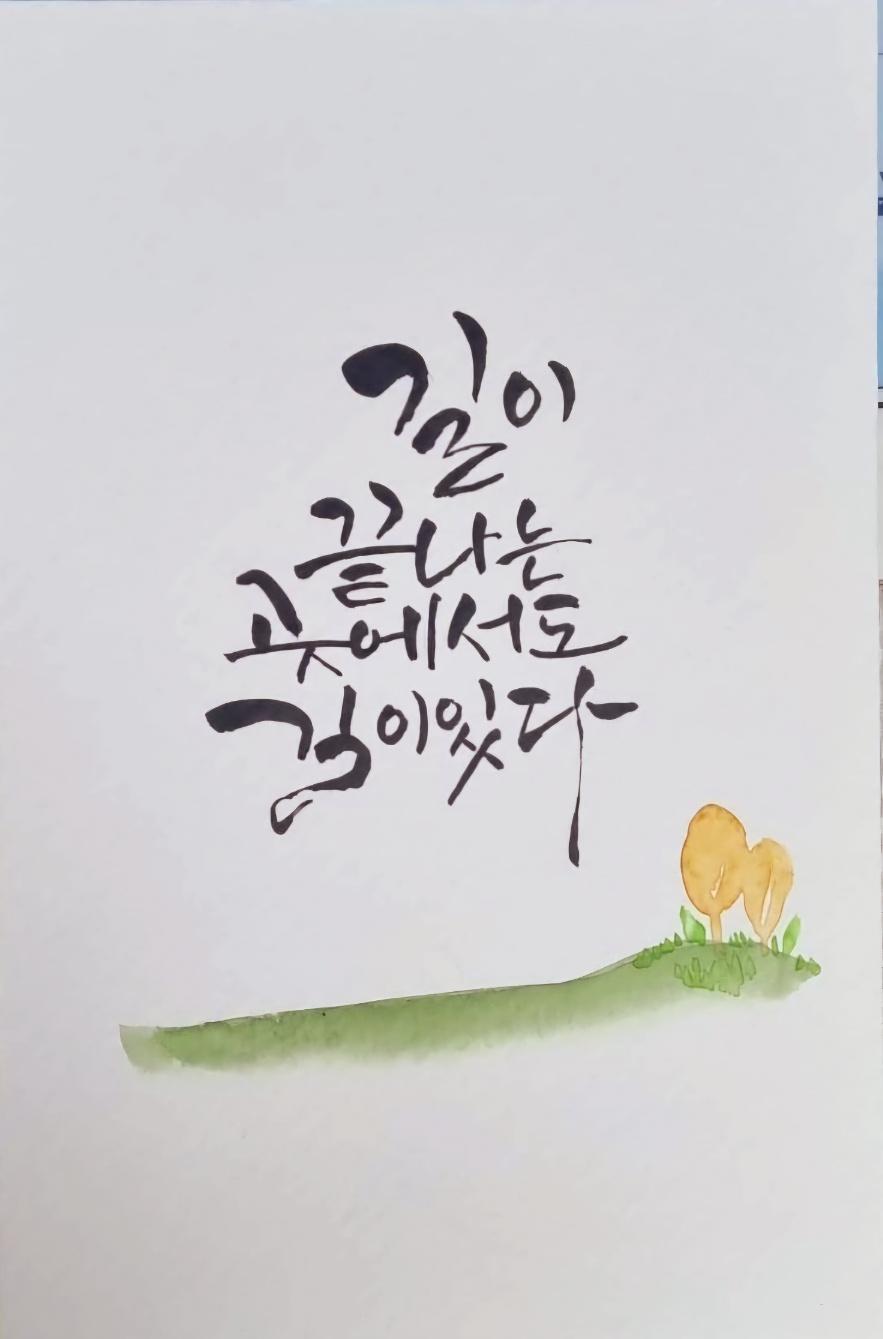 길이
끝나는
곳에서도
길이있다